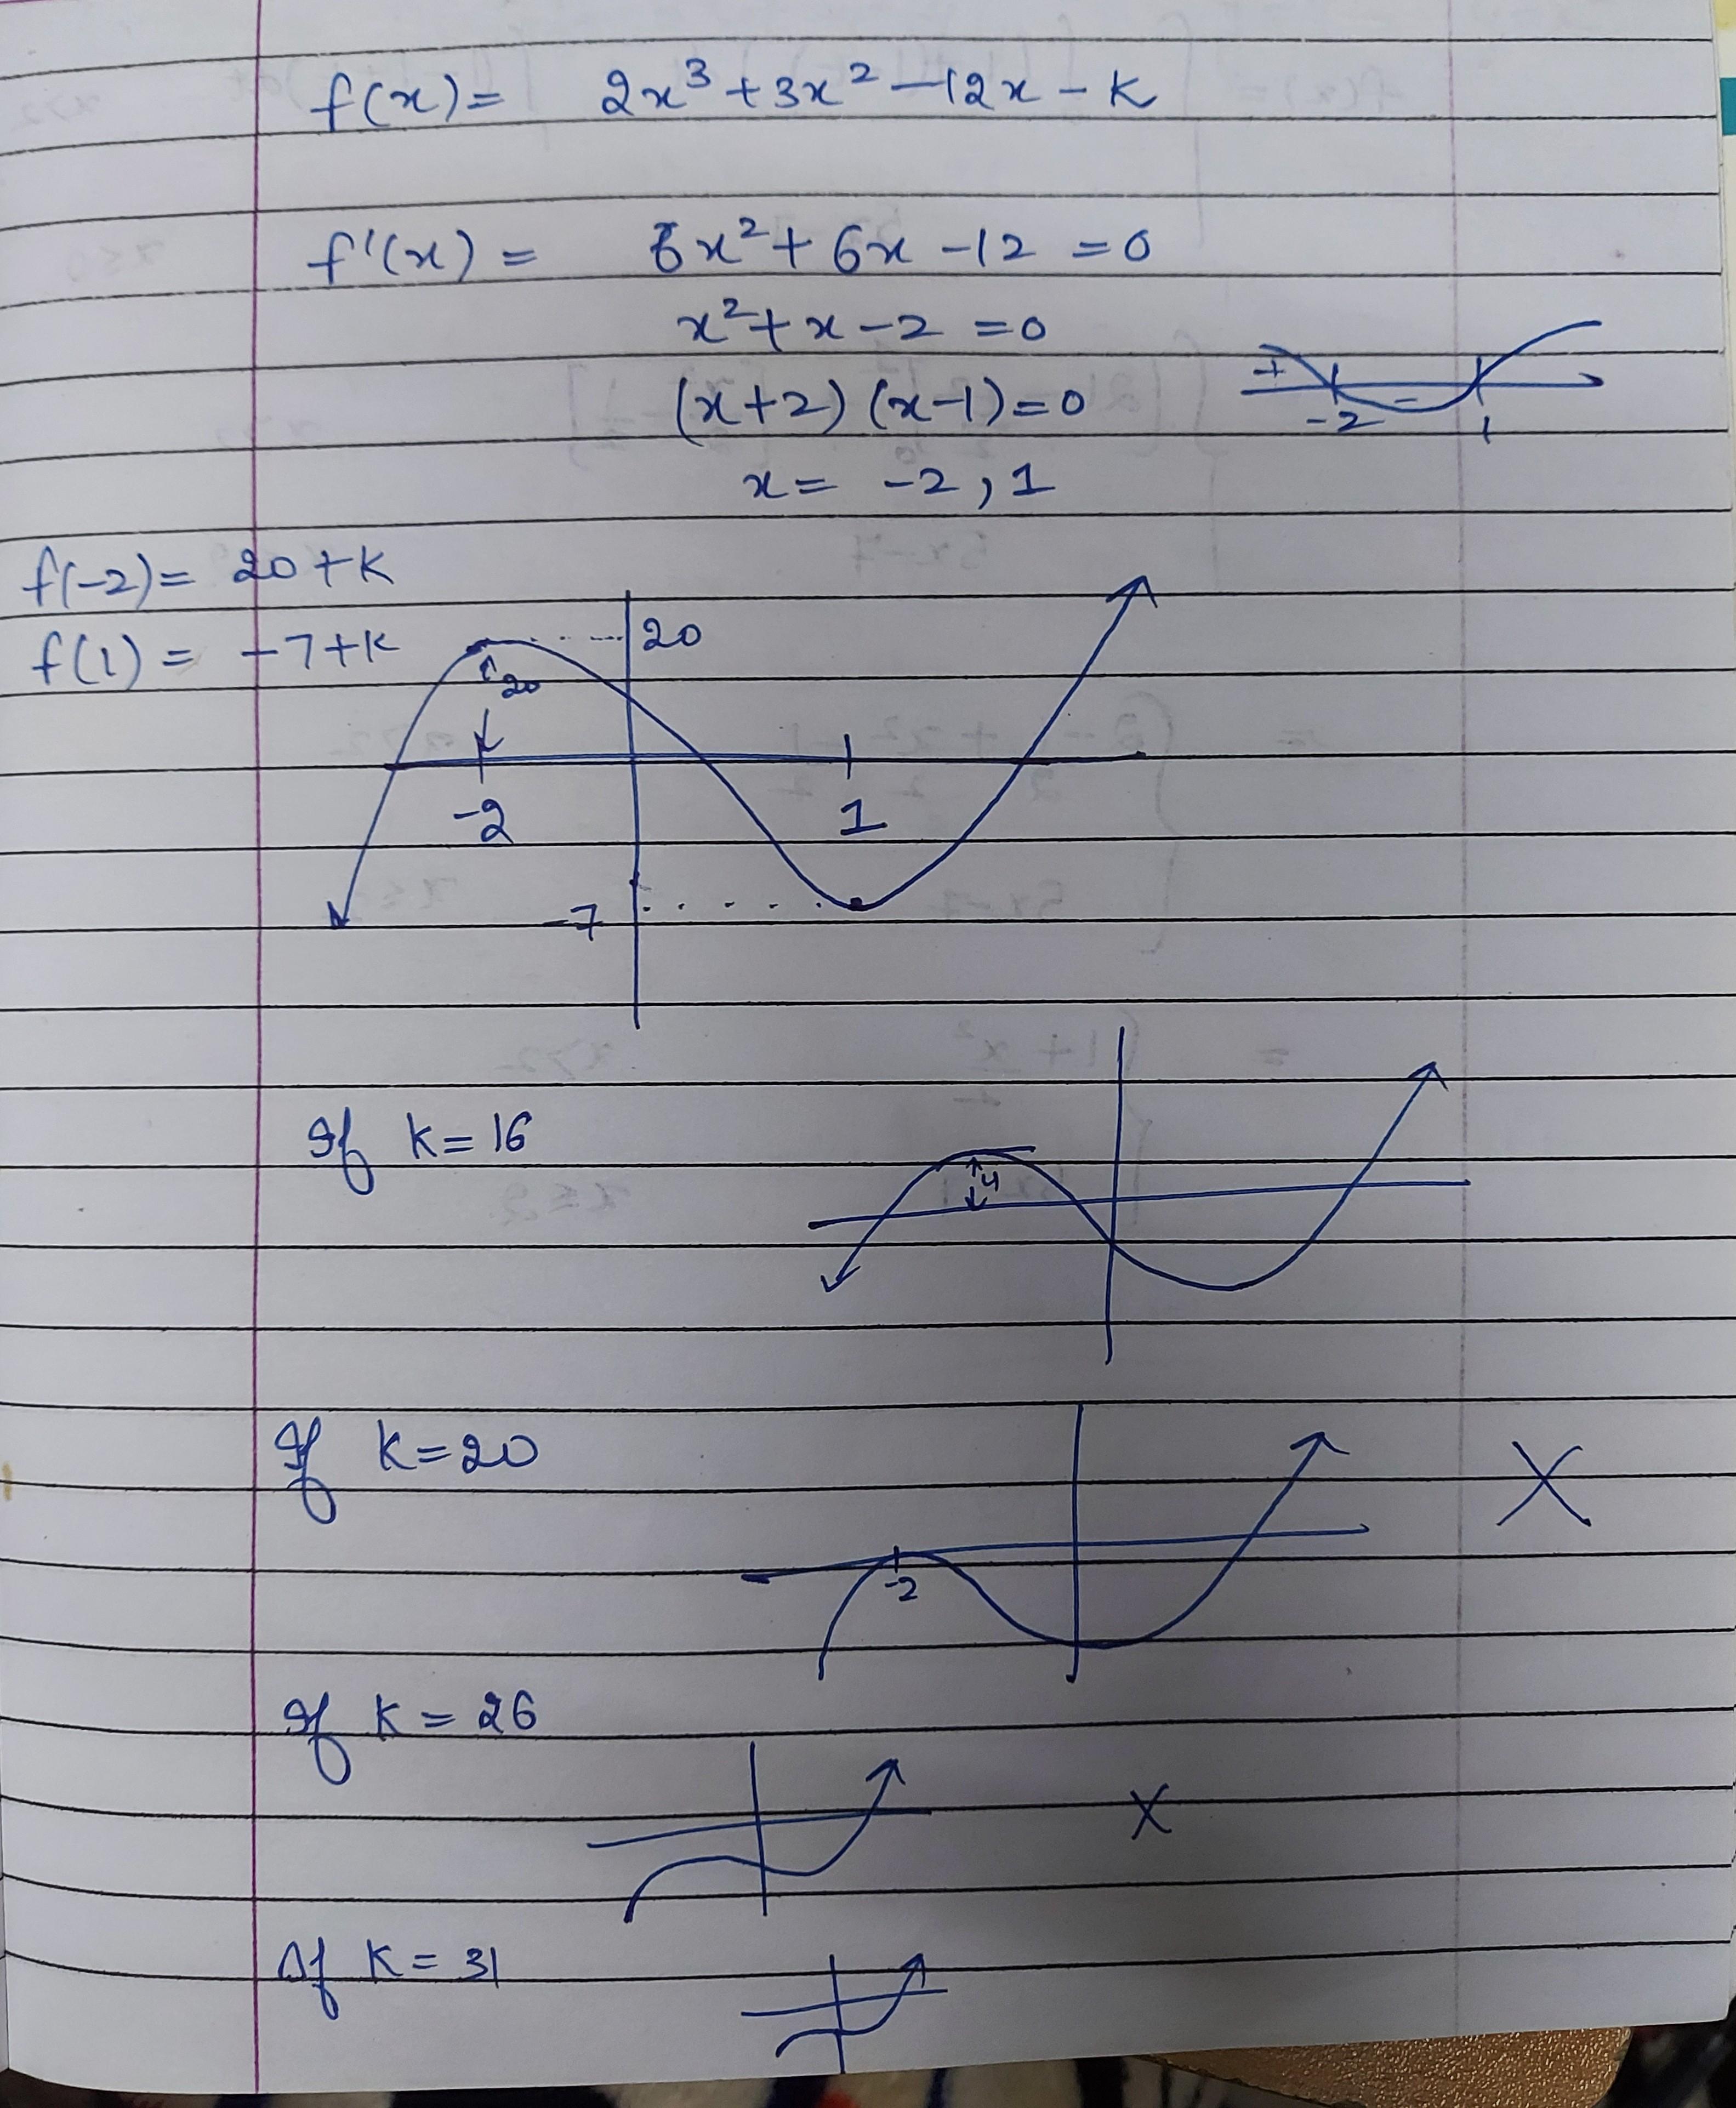 f(x) = 2x³ + 3x² - 12x - k
f'(x) = 6x² + 6x - 12 = 0
x² + x - 2 = 0
(x+2) (x-1) = 0
+ -
-2 1
x = -2, 1
f(-2) = 20 + k
f(1) = -7 + k
20
20
-2 1
-7
If k = 16
4
If k = 20 X
-2
If k = 26
X
If k = 31